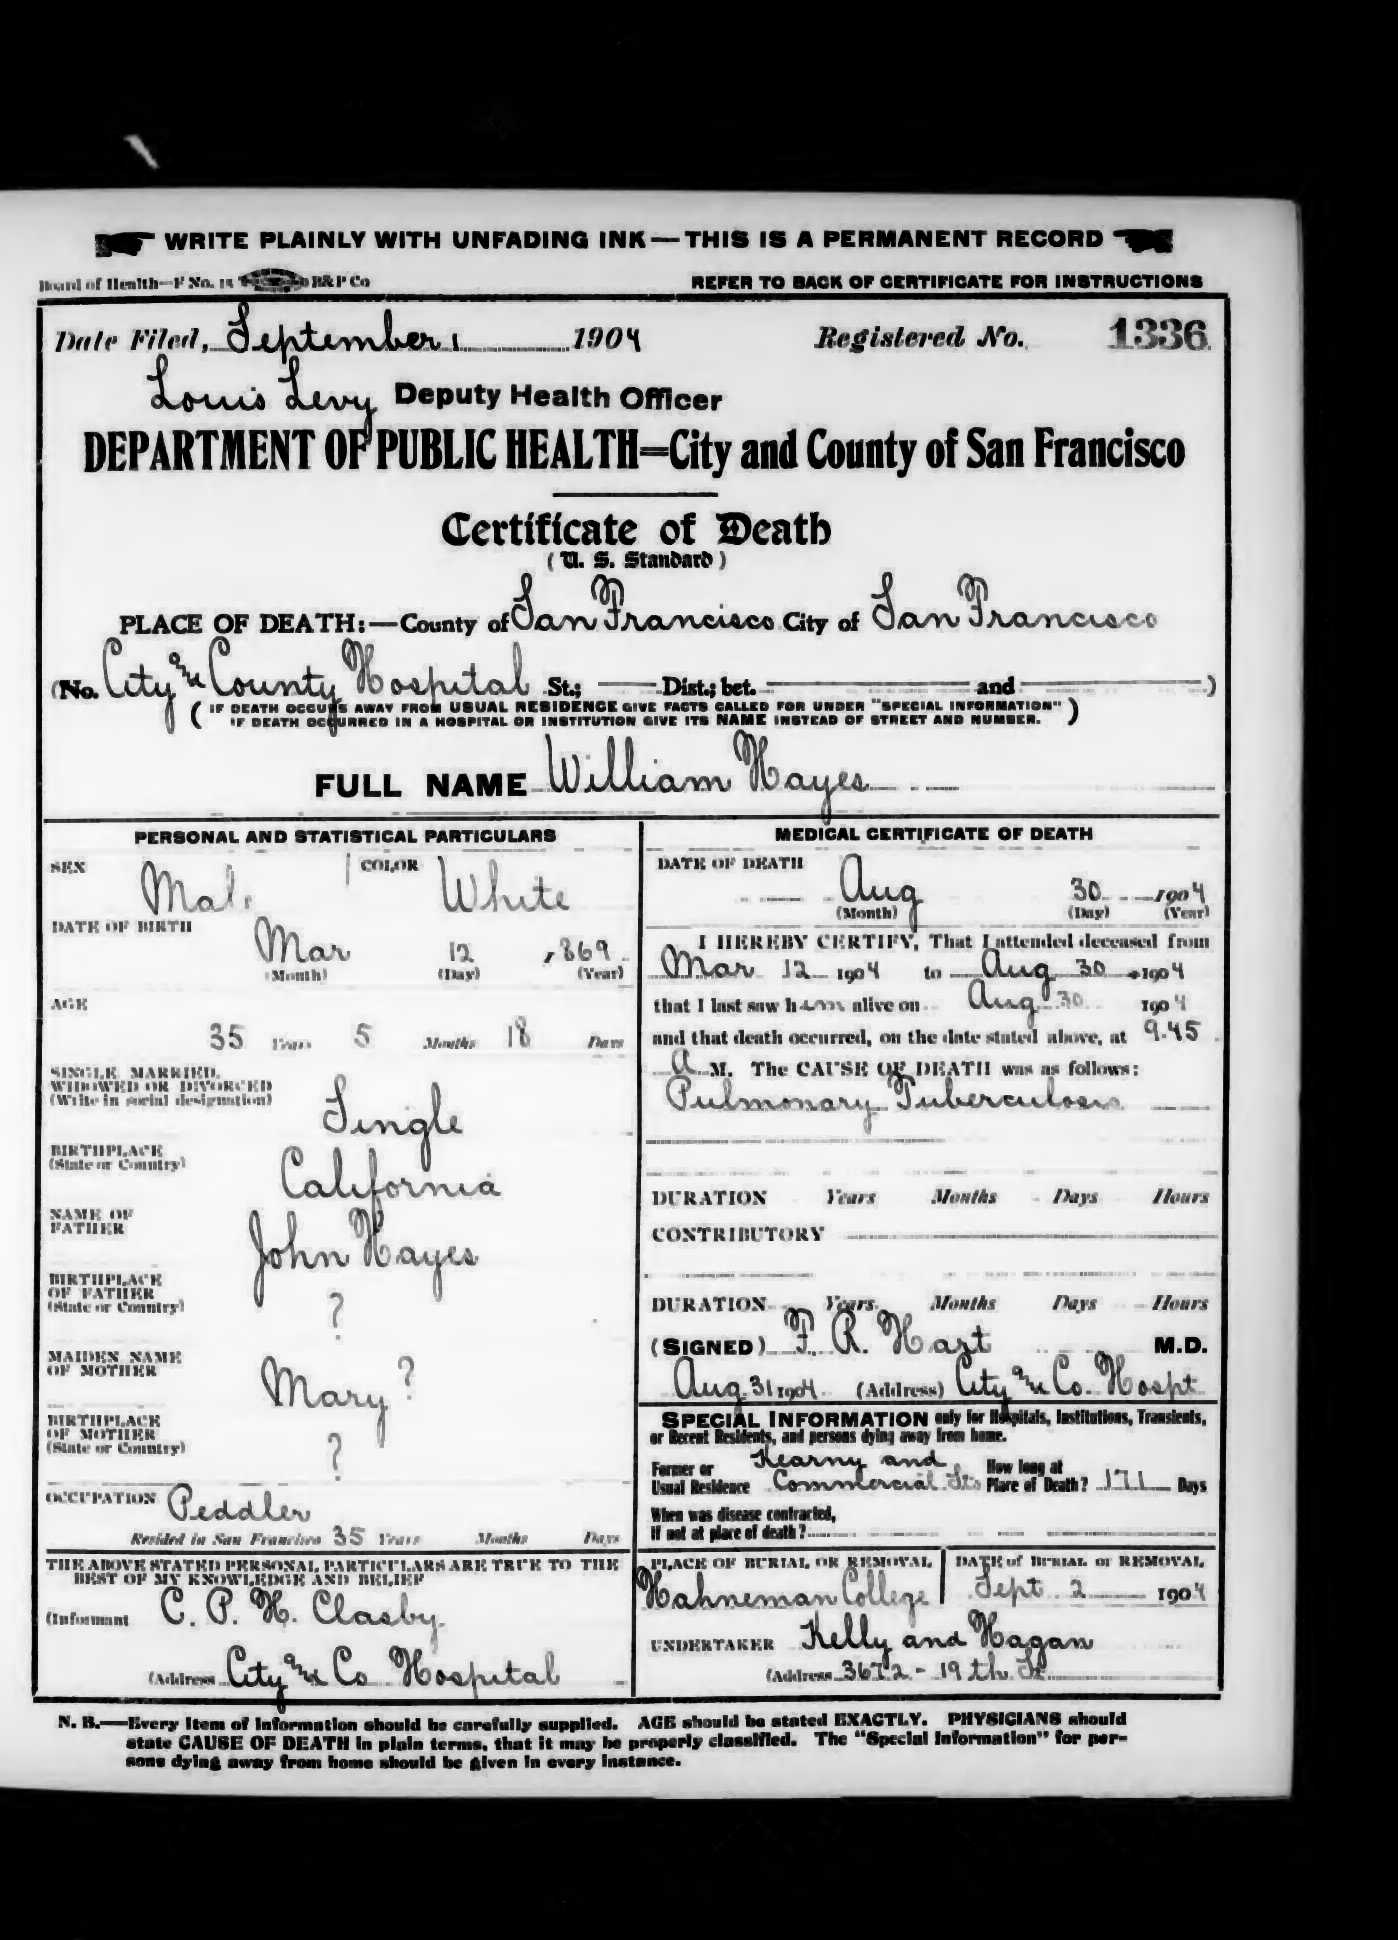 WRITE PLAINLY WITH UNFADING INK—THIS IS A PERMANENT RECORD
Board of Health—F No. 15 B&P Co REFER TO BACK OF CERTIFICATE FOR INSTRUCTIONS
Date Filed, September 1 1904 Registered No. 1336
Louis Levy Deputy Health Officer
DEPARTMENT OF PUBLIC HEALTH=City and County of San Francisco
Certificate of Death
(U. S. Standard)
PLACE OF DEATH:—County of San Francisco City of San Francisco
(No. City and County Hospital St.; Dist.; bet. and )
( IF DEATH OCCURS AWAY FROM USUAL RESIDENCE GIVE FACTS CALLED FOR UNDER "SPECIAL INFORMATION"
IF DEATH OCCURRED IN A HOSPITAL OR INSTITUTION GIVE ITS NAME INSTEAD OF STREET AND NUMBER. )
FULL NAME William Hayes
PERSONAL AND STATISTICAL PARTICULARS
SEX Male COLOR White
DATE OF BIRTH
Mar 12 , 869
(Month) (Day) (Year)
AGE
35 Years 5 Months 18 Days
SINGLE, MARRIED,
WIDOWED OR DIVORCED
(Write in social designation)
Single
BIRTHPLACE
(State or Country)
California
NAME OF
FATHER
John Hayes
BIRTHPLACE
OF FATHER
(State or Country)
?
MAIDEN NAME
OF MOTHER
Mary ?
BIRTHPLACE
OF MOTHER
(State or Country)
?
OCCUPATION Peddler
Resided in San Francisco 35 Years Months Days
THE ABOVE STATED PERSONAL PARTICULARS ARE TRUE TO THE
BEST OF MY KNOWLEDGE AND BELIEF
(Informant C. P. H. Clasby
(Address City and Co Hospital
MEDICAL CERTIFICATE OF DEATH
DATE OF DEATH
Aug 30 1904
(Month) (Day) (Year)
I HEREBY CERTIFY, That I attended deceased from
Mar 12 1904 to Aug 30 1904
that I last saw him alive on Aug 30 1904
and that death occurred, on the date stated above, at 9.45
A M. The CAUSE OF DEATH was as follows:
Pulmonary Tuberculosis
DURATION Years Months Days Hours
CONTRIBUTORY
DURATION Years Months Days Hours
(SIGNED) F. R. Hart M.D.
Aug. 31 1904 (Address) City and Co. Hospt
SPECIAL INFORMATION only for Hospitals, Institutions, Transients,
or Recent Residents, and persons dying away from home.
Former or Usual Residence Kearny and Commercial Sts How long at Place of Death? 171 Days
When was disease contracted,
If not at place of death?
PLACE OF BURIAL OR REMOVAL DATE of BURIAL or REMOVAL
Hahneman College Sept 2 1904
UNDERTAKER Kelly and Hagan
(Address 3672 - 19th St
N. B.—Every item of information should be carefully supplied. AGE should be stated EXACTLY. PHYSICIANS should
state CAUSE OF DEATH in plain terms, that it may be properly classified. The "Special Information" for per-
sons dying away from home should be given in every instance.